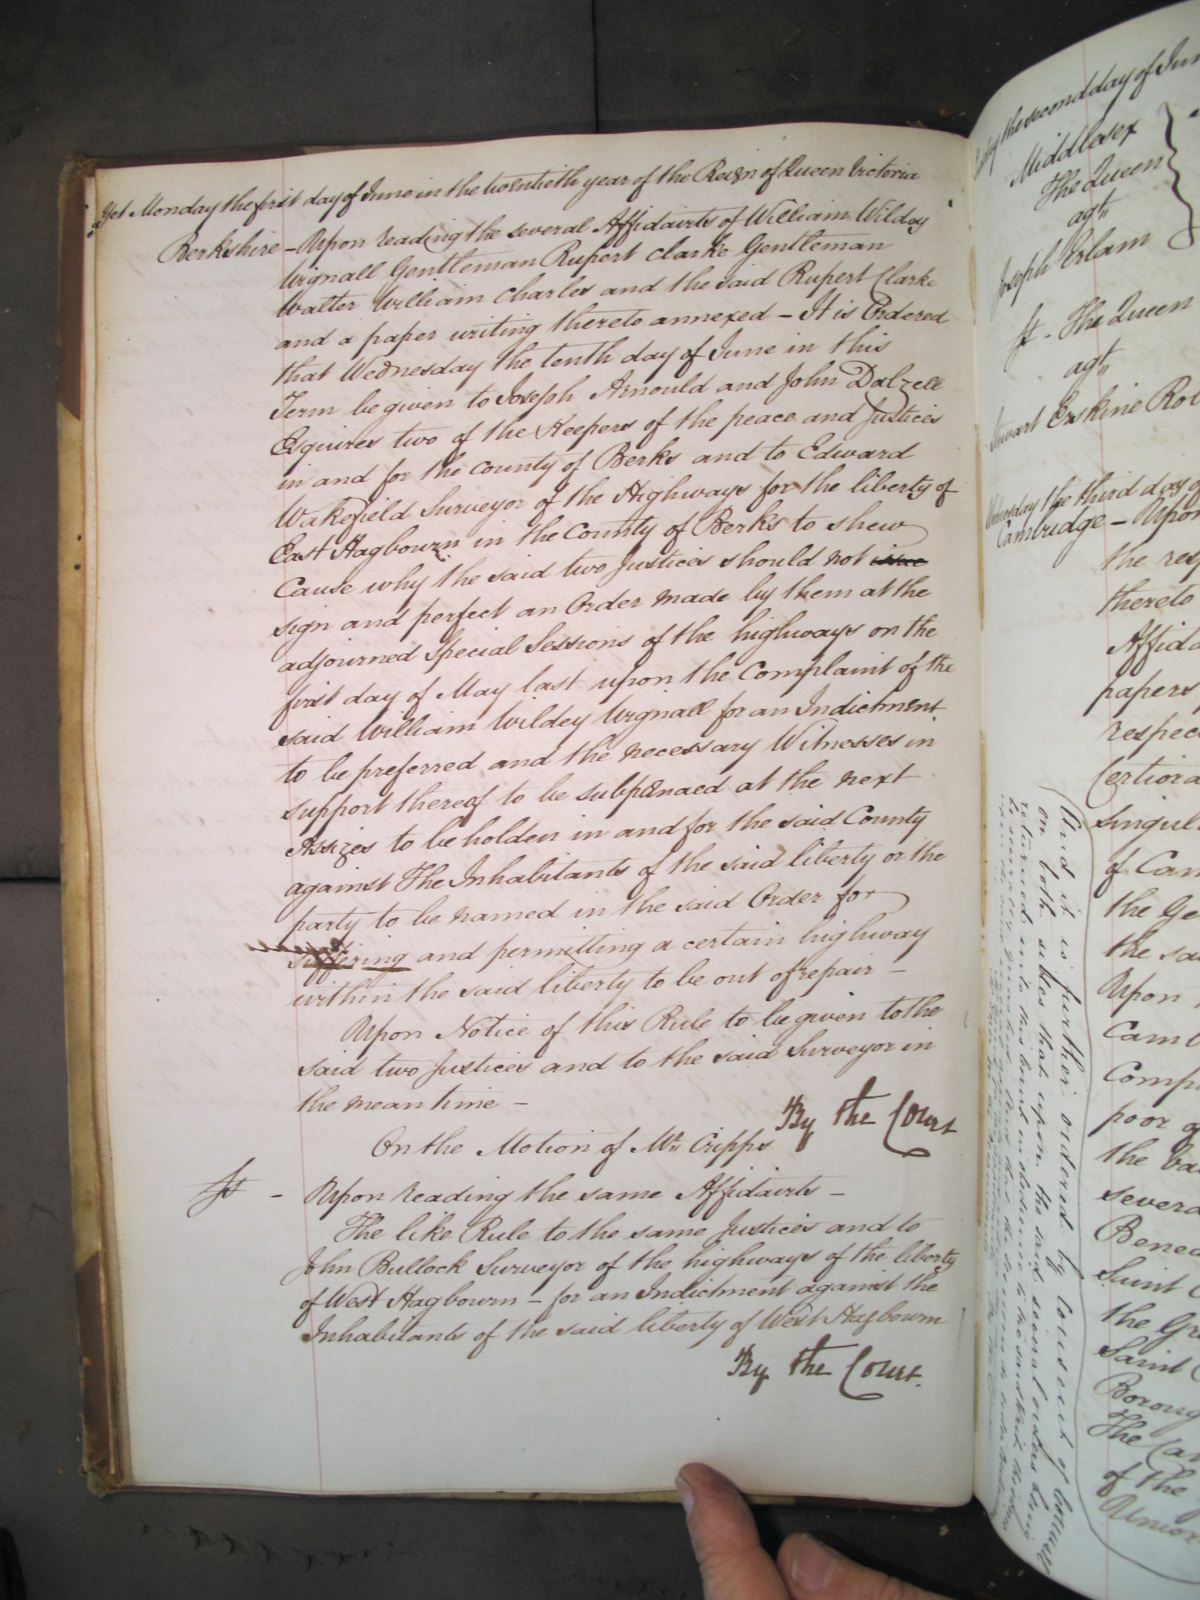 Yet Monday the first day of June in the twentieth year of the Reign of Queen Victoria
Berkshire – Upon reading the several Affidavits of William Wildey
Wignall Gentleman Rupert Clarke Gentleman
Walter William Charles and the said Rupert Clarke
and a paper writing thereto annexed – It is Ordered
that Wednesday the tenth day of June in this
Term be given to Joseph Arnould and John Dalzell
Esquires two of the Keepers of the peace and Justices
in and for the County of Berks and to Edward
Wakefield Surveyor of the Highways for the liberty of
East Hagbourn in the County of Berks to shew
Cause why the said two Justices should not issue
sign and perfect an Order made by them at the
adjourned Special Sessions of the highways on the
first day of May last upon the Complaint of the
said William Wildey Wignall for an Indictment
to be preferred and the necessary Witnesses in
support thereof to be subpœnaed at the next
Assizes to be holden in and for the said County
against The Inhabitants of the said liberty or the
party to be named in the said Order for
suffering and permitting a certain highway
within the said liberty to be out of repair –
Upon Notice of this Rule to be given to the
said two Justices and to the said Surveyor in
the mean time –
By the Court
On the Motion of Mr Cripps
St – Upon reading the same Affidavits –
The like Rule to the same Justices and to
John Bullock Surveyor of the highways of the liberty
of West Hagbourn – for an Indictment against the
Inhabitants of the said liberty of West Hagbourn
By the Court.
the second day of June
Middlesex
The Queen
agt
Joseph Erlam
St – The Queen
agt
Stewart Erskine Rol
Wednesday the third day of
Cambridge – Upon
the resp
thereto
Affida
papers
respec
Certiora
singul
of Cam
the Ge
the sa
Upon
Camb
Comp
poor
the ba
severa
Bened
Saint
the Gr
Saint
Boroug
The Cam
of the
Union
And it is further ordered by consent of Counsel
on both sides that upon the said several orders being
returned into this Court